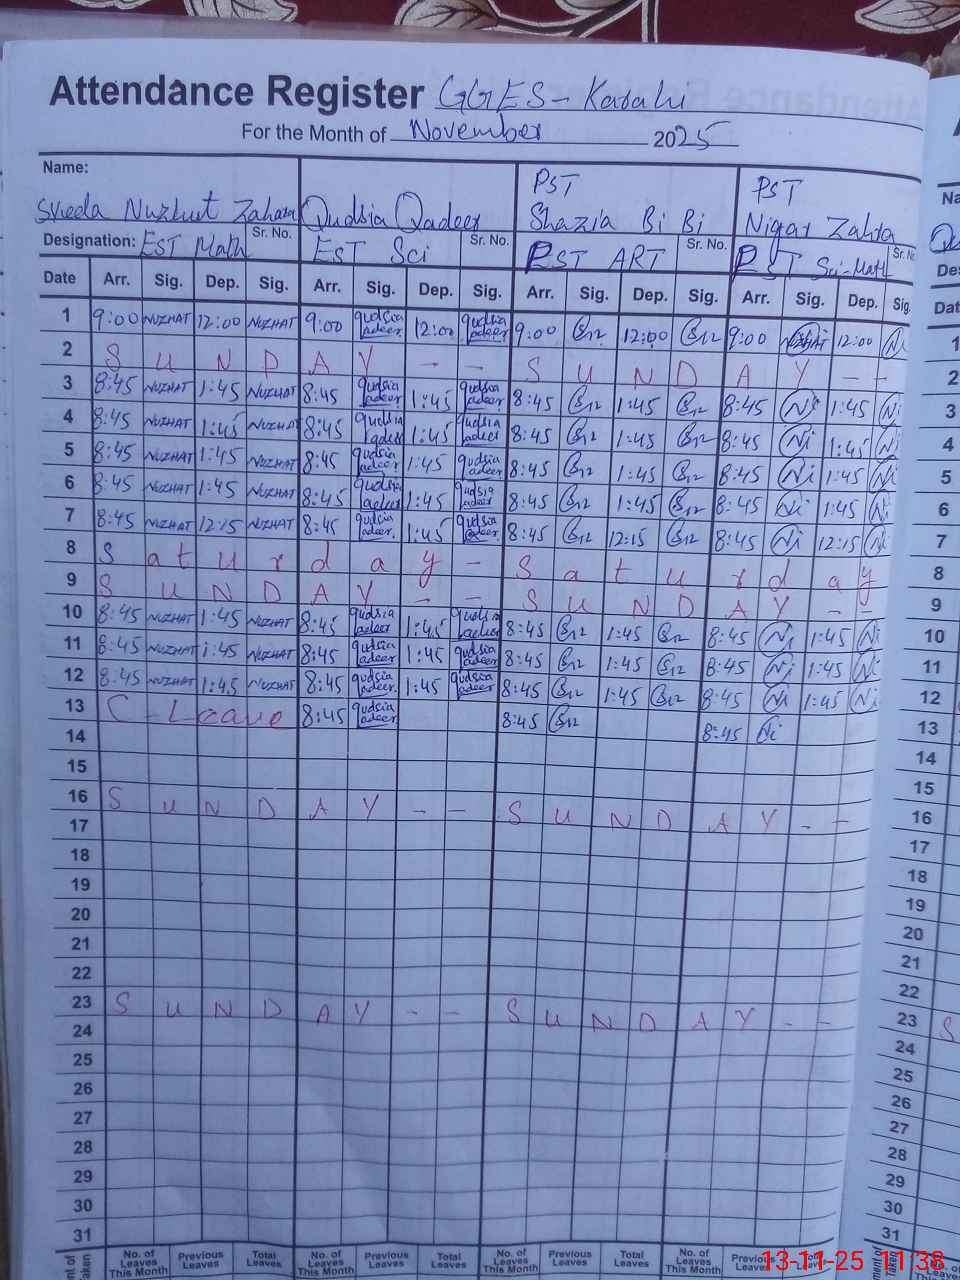 Attendance Register GGES - Kasahi
For the Month of November 2025
Name:
Syeda Nuzhut Zahara Qudsia Qadeer PST Shazia Bi Bi PST Nigar Zahra
Designation: EST Math Sr. No. EST Sci Sr. No. PST ART Sr. No. PST Sci-Math Sr. No.
Date Arr. Sig. Dep. Sig. Arr. Sig. Dep. Sig. Arr. Sig. Dep. Sig. Arr. Sig. Dep. Sig.
1 9:00 NUZHAT 12:00 NUZHAT 9:00 qudsia qadeer 12:00 qudsia qadeer 9:00 12:00 9:00 12:00 Ni 1
2 S U N D A Y - - S U N D A Y - - 2
3 8:45 NUZHAT 1:45 NUZHAT 8:45 qudsia qadeer 1:45 qudsia qadeer 8:45 1:45 8:45 Ni 1:45 Ni 3
4 8:45 NUZHAT 1:45 NUZHAT 8:45 qudsia qadeer 1:45 qudsia qadeer 8:45 1:45 8:45 Ni 1:45 Ni 4
5 8:45 NUZHAT 1:45 NUZHAT 8:45 qudsia qadeer 1:45 qudsia qadeer 8:45 1:45 8:45 Ni 1:45 Ni 5
6 8:45 NUZHAT 1:45 NUZHAT 8:45 qudsia qadeer 1:45 qudsia qadeer 8:45 1:45 8:45 Ni 1:45 Ni 6
7 8:45 NUZHAT 12:15 NUZHAT 8:45 qudsia qadeer 1:45 qudsia qadeer 8:45 12:15 8:45 Ni 12:15 Ni 7
8 S a t u r d a y - S a t u r d a y 8
9 S U N D A Y - - S U N D A Y - - 9
10 8:45 NUZHAT 1:45 NUZHAT 8:45 qudsia qadeer 1:45 qudsia qadeer 8:45 1:45 8:45 Ni 1:45 Ni 10
11 8:45 NUZHAT 1:45 NUZHAT 8:45 qudsia qadeer 1:45 qudsia qadeer 8:45 1:45 8:45 Ni 1:45 Ni 11
12 8:45 NUZHAT 1:45 NUZHAT 8:45 qudsia qadeer 1:45 qudsia qadeer 8:45 1:45 8:45 Ni 1:45 Ni 12
13 C - Leave 8:45 qudsia qadeer 8:45 8:45 Ni 13
14 14
15 15
16 S U N D A Y - - S U N D A Y - - 16
17 17
18 18
19 19
20 20
21 21
22 22
23 S U N D A Y - - S U N D A Y - - 23 S
24 24
25 25
26 26
27 27
28 28
29 29
30 30
31 31
No. of Leaves This Month Previous Leaves Total Leaves No. of Leaves This Month Previous Leaves Total Leaves No. of Leaves This Month Previous Leaves Total Leaves No. of Leaves This Month
13-11-25 11:38